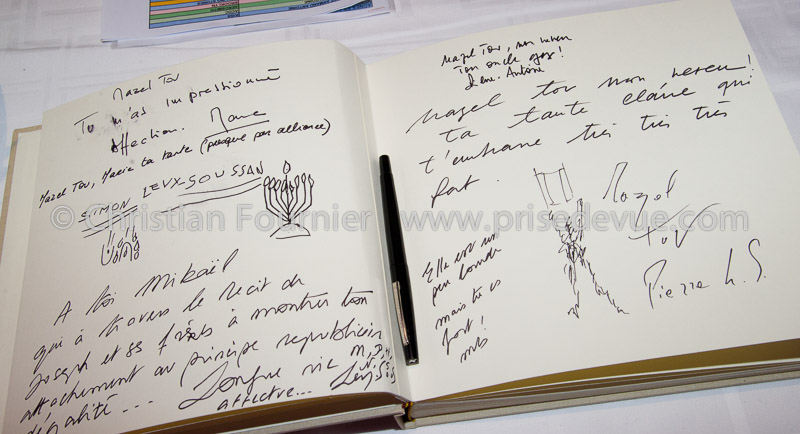 Mazel Tov
Tu m'as impressionné
Affection.
Mazel Tov, Marie ta tante (presque par alliance)
SIMON LEVY-SOUSSAN
A toi Mikaël
qui à travers le récit de
Joseph et ses frères à montrer ton
attachement au principe républicain
d'égalité... Longue vie
affective...
Mazel Tov, mon neveu
Ton oncle
Antoine
Mazel tov mon neveu!
ta tante claire qui
t'embrasse très très très
fort.
Mazal
tov
Pierre L. S.
Elle est un
peu lourde
mais tu es
fort!
© Christian Fournier / www.prisedevue.com